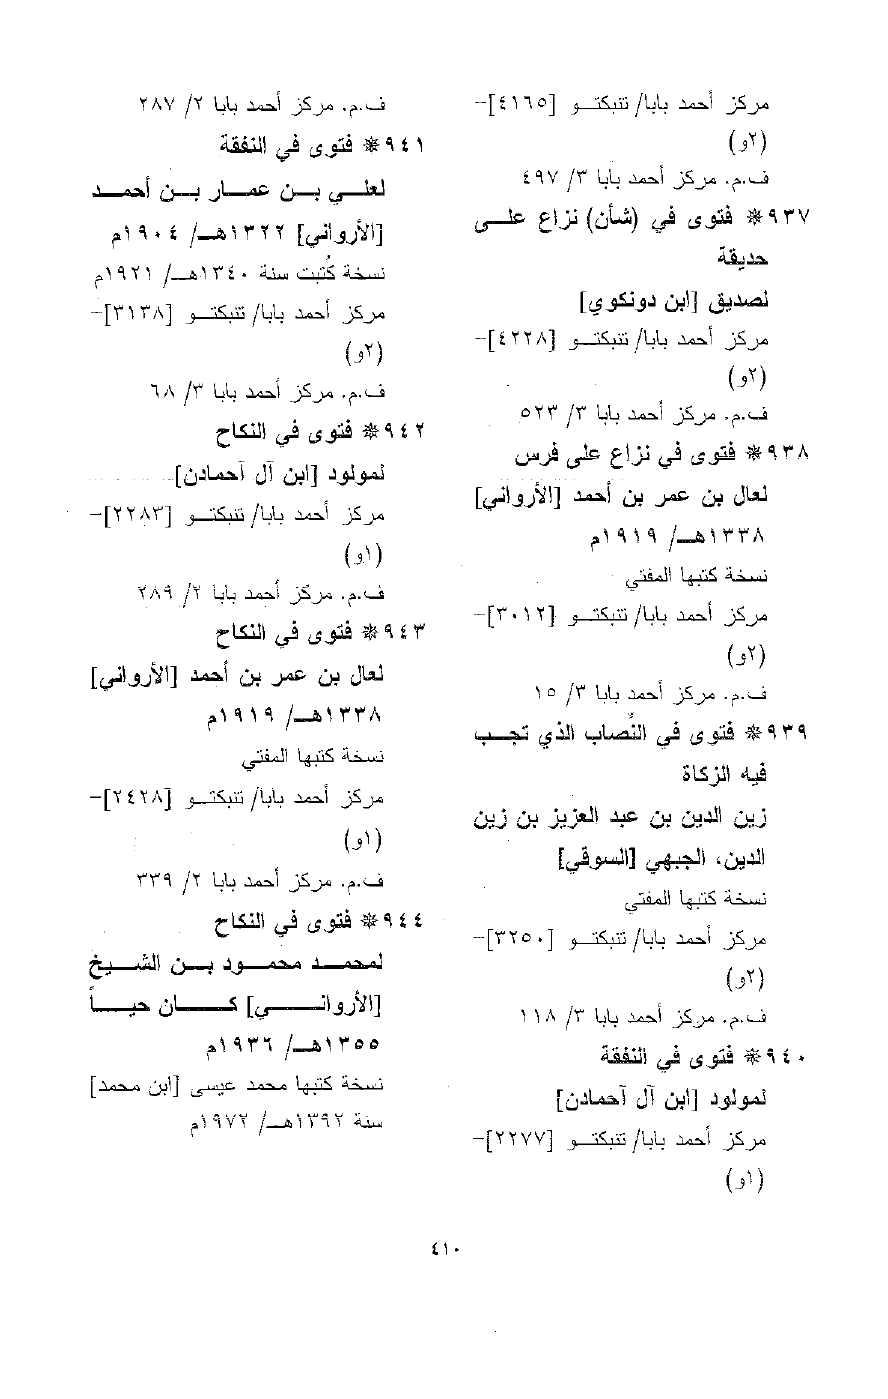 مركز أحمد بابا/ تنبكتـــو [٤١٦٥]-
(٢و)
ف.م. مركز أحمد بابا ٣/ ٤٩٧
٩٣٧* فتوى في (شأن) نزاع علـــى
حديقة
لصديق [ابن دونكوي]
مركز أحمد بابا/ تنبكتـــو [٤٢٢٨]-
(٢و)
ف.م. مركز أحمد بابا ٣/ ٥٢٣
٩٣٨* فتوى في نزاع على فرس
لعال بن عمر بن أحمد [الأرواني]
١٣٣٨هـــ/ ١٩١٩م
نسخة كتبها المفتي
مركز أحمد بابا/ تنبكتـــو [٣٠١٢]-
(٢و)
ف.م. مركز أحمد بابا ٣/ ١٥
٩٣٩* فتوى في النّصاب الذي تجـــب
فيه الزكاة
زين الدين بن عبد العزيز بن زين
الدين، الجبهي [السوقي]
نسخة كتبها المفتي
مركز أحمد بابا/ تنبكتـــو [٣٢٥٠]-
(٢و)
ف.م. مركز أحمد بابا ٣/ ١١٨
٩٤٠* فتوى في النفقة
لمولود [ابن آل آحمادن]
مركز أحمد بابا/ تنبكتـــو [٢٢٧٧]-
(١و)
ف.م. مركز أحمد بابا ٢/ ٢٨٧
٩٤١* فتوى في النفقة
لعلـــي بـــن عمـــار بـــن أحمـــد
[الأرواني] ١٣٢٢هـــ/ ١٩٠٤م
نسخة كُتبت سنة ١٣٤٠هـــ/ ١٩٢١م
مركز أحمد بابا/ تنبكتـــو [٣١٣٨]-
(٢و)
ف.م. مركز أحمد بابا ٣/ ٦٨
٩٤٢* فتوى في النكاح
لمولود [ابن آل آحمادن]
مركز أحمد بابا/ تنبكتـــو [٢٢٨٣]-
(١و)
ف.م. مركز أحمد بابا ٢/ ٢٨٩
٩٤٣* فتوى في النكاح
لعال بن عمر بن أحمد [الأرواني]
١٣٣٨هـــ/ ١٩١٩م
نسخة كتبها المفتي
مركز أحمد بابا/ تنبكتـــو [٢٤٢٨]-
(١و)
ف.م. مركز أحمد بابا ٢/ ٣٣٩
٩٤٤* فتوى في النكاح
لمحمـــد محمـــود بـــن الشـــيخ
[الأروانـــي] كـــان حيـــاً
١٣٥٥هـــ/ ١٩٣٦م
نسخة كتبها محمد عيسى [ابن محمد]
سنة ١٣٩٢هـــ/ ١٩٧٢م
٤١٠